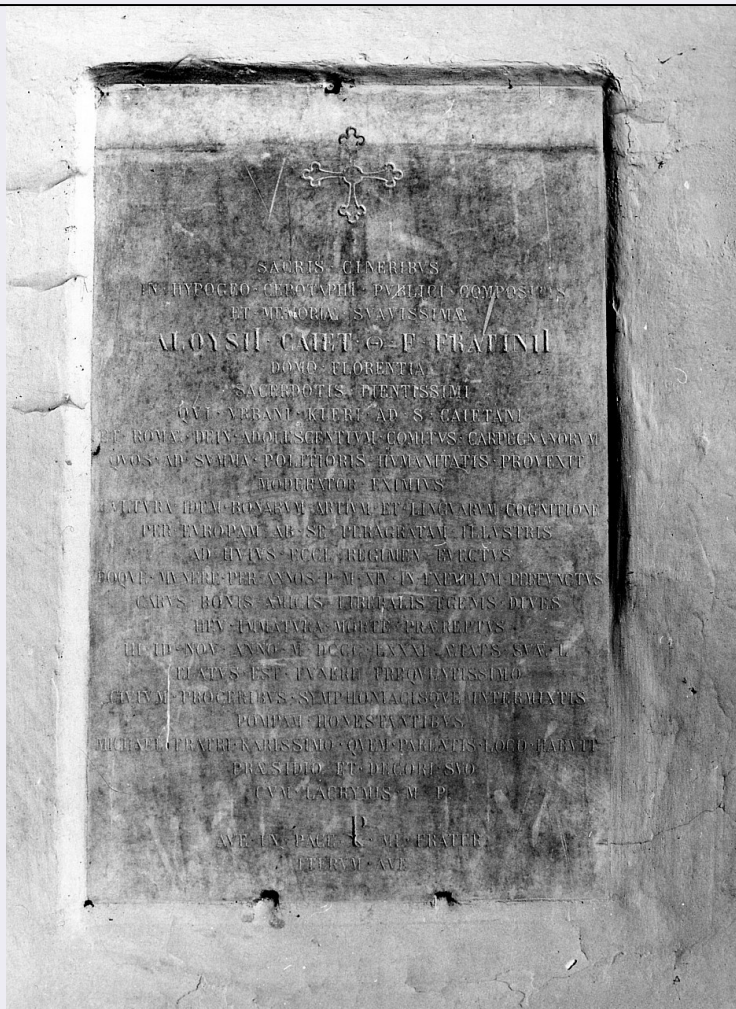 SACRIS · CINERIBVS
IN · HYPOGEO · CEPOTAPHI · PVBLICI · COMPOSITIS
ET · MEMORIAE · SVAVISSIMAE
ALOYSII · CAIET · Θ · F · FRATINII
DOMO · FLORENTIA
SACERDOTIS · PIENTISSIMI
QVI · VRBANI · KLERI · AD · S · CAIETANI
ET · ROMAE · DEIN · ADOLESCENTIVM · COMITVS · CARPEGNANORVM
QVOS · AD · SVMMA · POLITIORIS · HVMANITATIS · PROVEXIT
MODERATOR · EXIMIVS
CVLTVRA · IDEM · BONARVM · ARTIVM · ET · LINGVARVM · COGNITIONE
PER · EVROPAM · AB · SE · PERAGRATAM · ILLVSTRIS
AD · HVIVS · ECCL · REGIMEN · EVECTVS
EOQVE · MVNERE · PER · ANNOS · P · M · XIV · IN · EXEMPLVM · DEFVNCTVS
CARVS · BONIS · AMICIS · LIBERALIS · EGENIS · DIVES
HEV · IMMATVRA · MORTE · PRAEREPTVS
III · ID · NOV · ANNO · M · DCCC · LXXXI · AETATIS · SVAE · L
ELATVS · EST · FVNERE · FREQVENTISSIMO
CIVIVM · PROCERIBVS · SYMPHONIACISQVE · INTERMIXTIS
POMPAM · HONESTANTIBVS
MICHAEL · FRATRI · KARISSIMO · QVEM · PARENTIS · LOCO · HABVIT
PRAESIDIO · ET · DECORI · SVO
CVM · LACRYMIS · M · P
AVE · IN · PACE · MI · FRATER
ITERVM · AVE